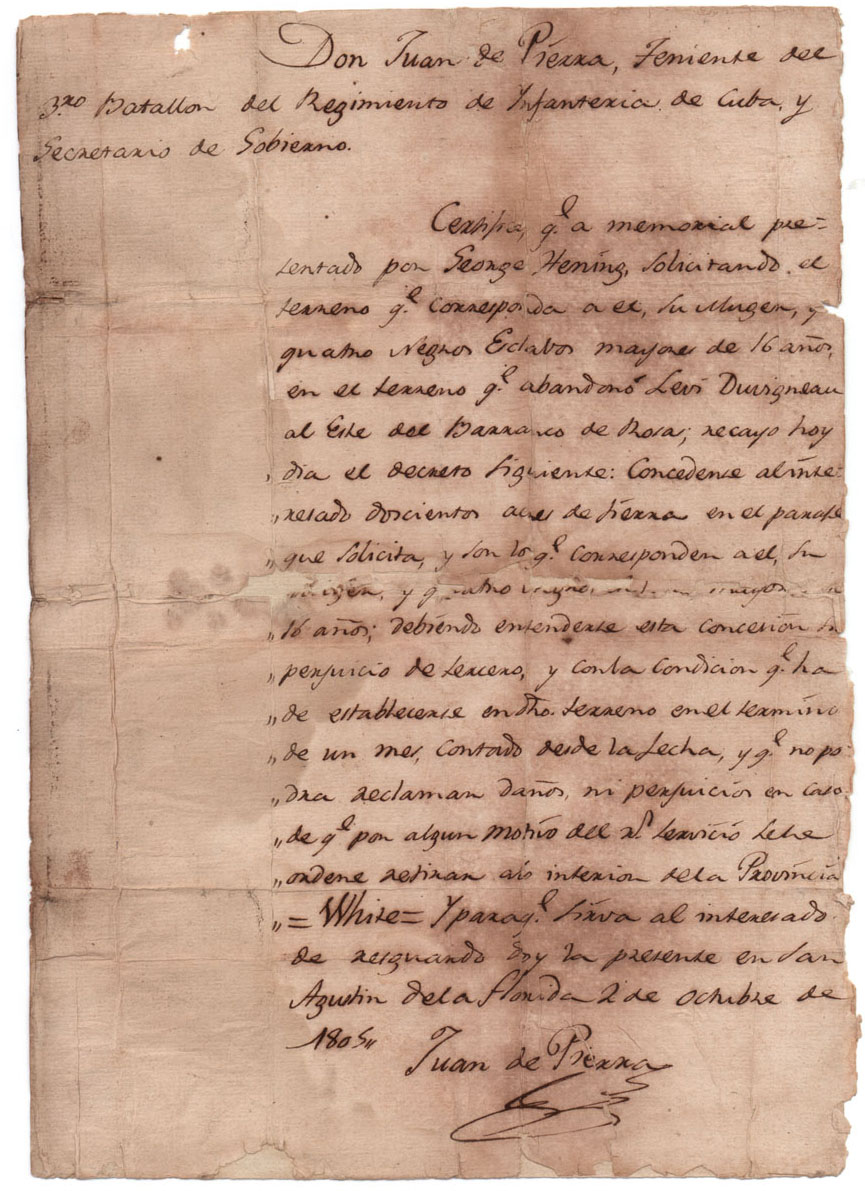 Don Juan de Pierra, Teniente del
3.ro Batallon del Regimiento de Ynfanteria de Cuba, y
Secretario de Gobierno.
Certifico, q.e a memorial pre=
sentado por George Hening, solicitando el
terreno q.e corresponda a el, su Muger, y
quatro Negros Esclabos mayores de 16 años,
en el terreno q.e abandonó Levi Duvigneau
al Este del Barranco de Rosas; recayo hoy
dia el decreto siguiente: Concedense al inte-
„ resado doscientos acres de tierra en el parage
„ que solicita, y son los q.e corresponden a el, su
muger, y quatro negros mayores
„ 16 años; debiendo entenderse esta concesion sin
„ perjuicio de tercero, y con la condicion q.e ha
„ de establecerse en dho. terreno en el termino
„ de un mes, contado desde la fecha, y q.e no po-
„ dra reclamar daños, ni perjuicios en caso
„ de q.e por algun motivo del r.l servicio se le
„ ordene retirar a lo interior de la Provincia
„ = White = Y para q.e sirva al interesado
de resguardo doy la presente en San
Agustin de la Florida 2 de Octubre de
1805„
Juan de Pierra